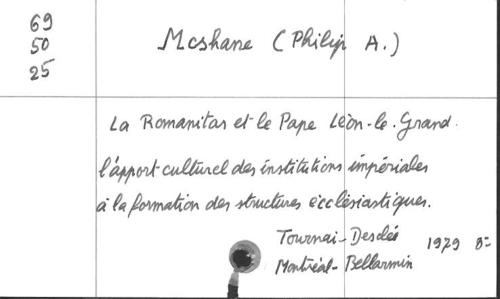 69
50
25
Mcshane (Philip A.)
La Romanitas et le Pape Léon-le-Grand.
l'apport culturel des institutions impériales
à la formation des structures ecclésiastiques.
Tournai-Desclée
1979 8=
Montréal-Bellarmin